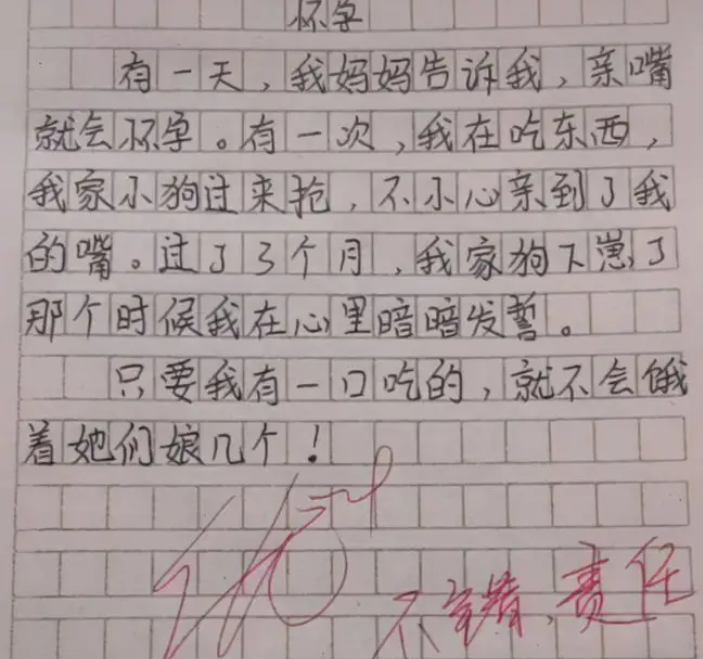 怀孕
有一天，我妈妈告诉我，亲嘴
就会怀孕。有一次，我在吃东西，
我家小狗过来抢，不小心亲到了我
的嘴。过了3个月，我家狗下崽了
那个时候我在心里暗暗发誓。
只要我有一口吃的，就不会饿
着她们娘几个！
不错，责任